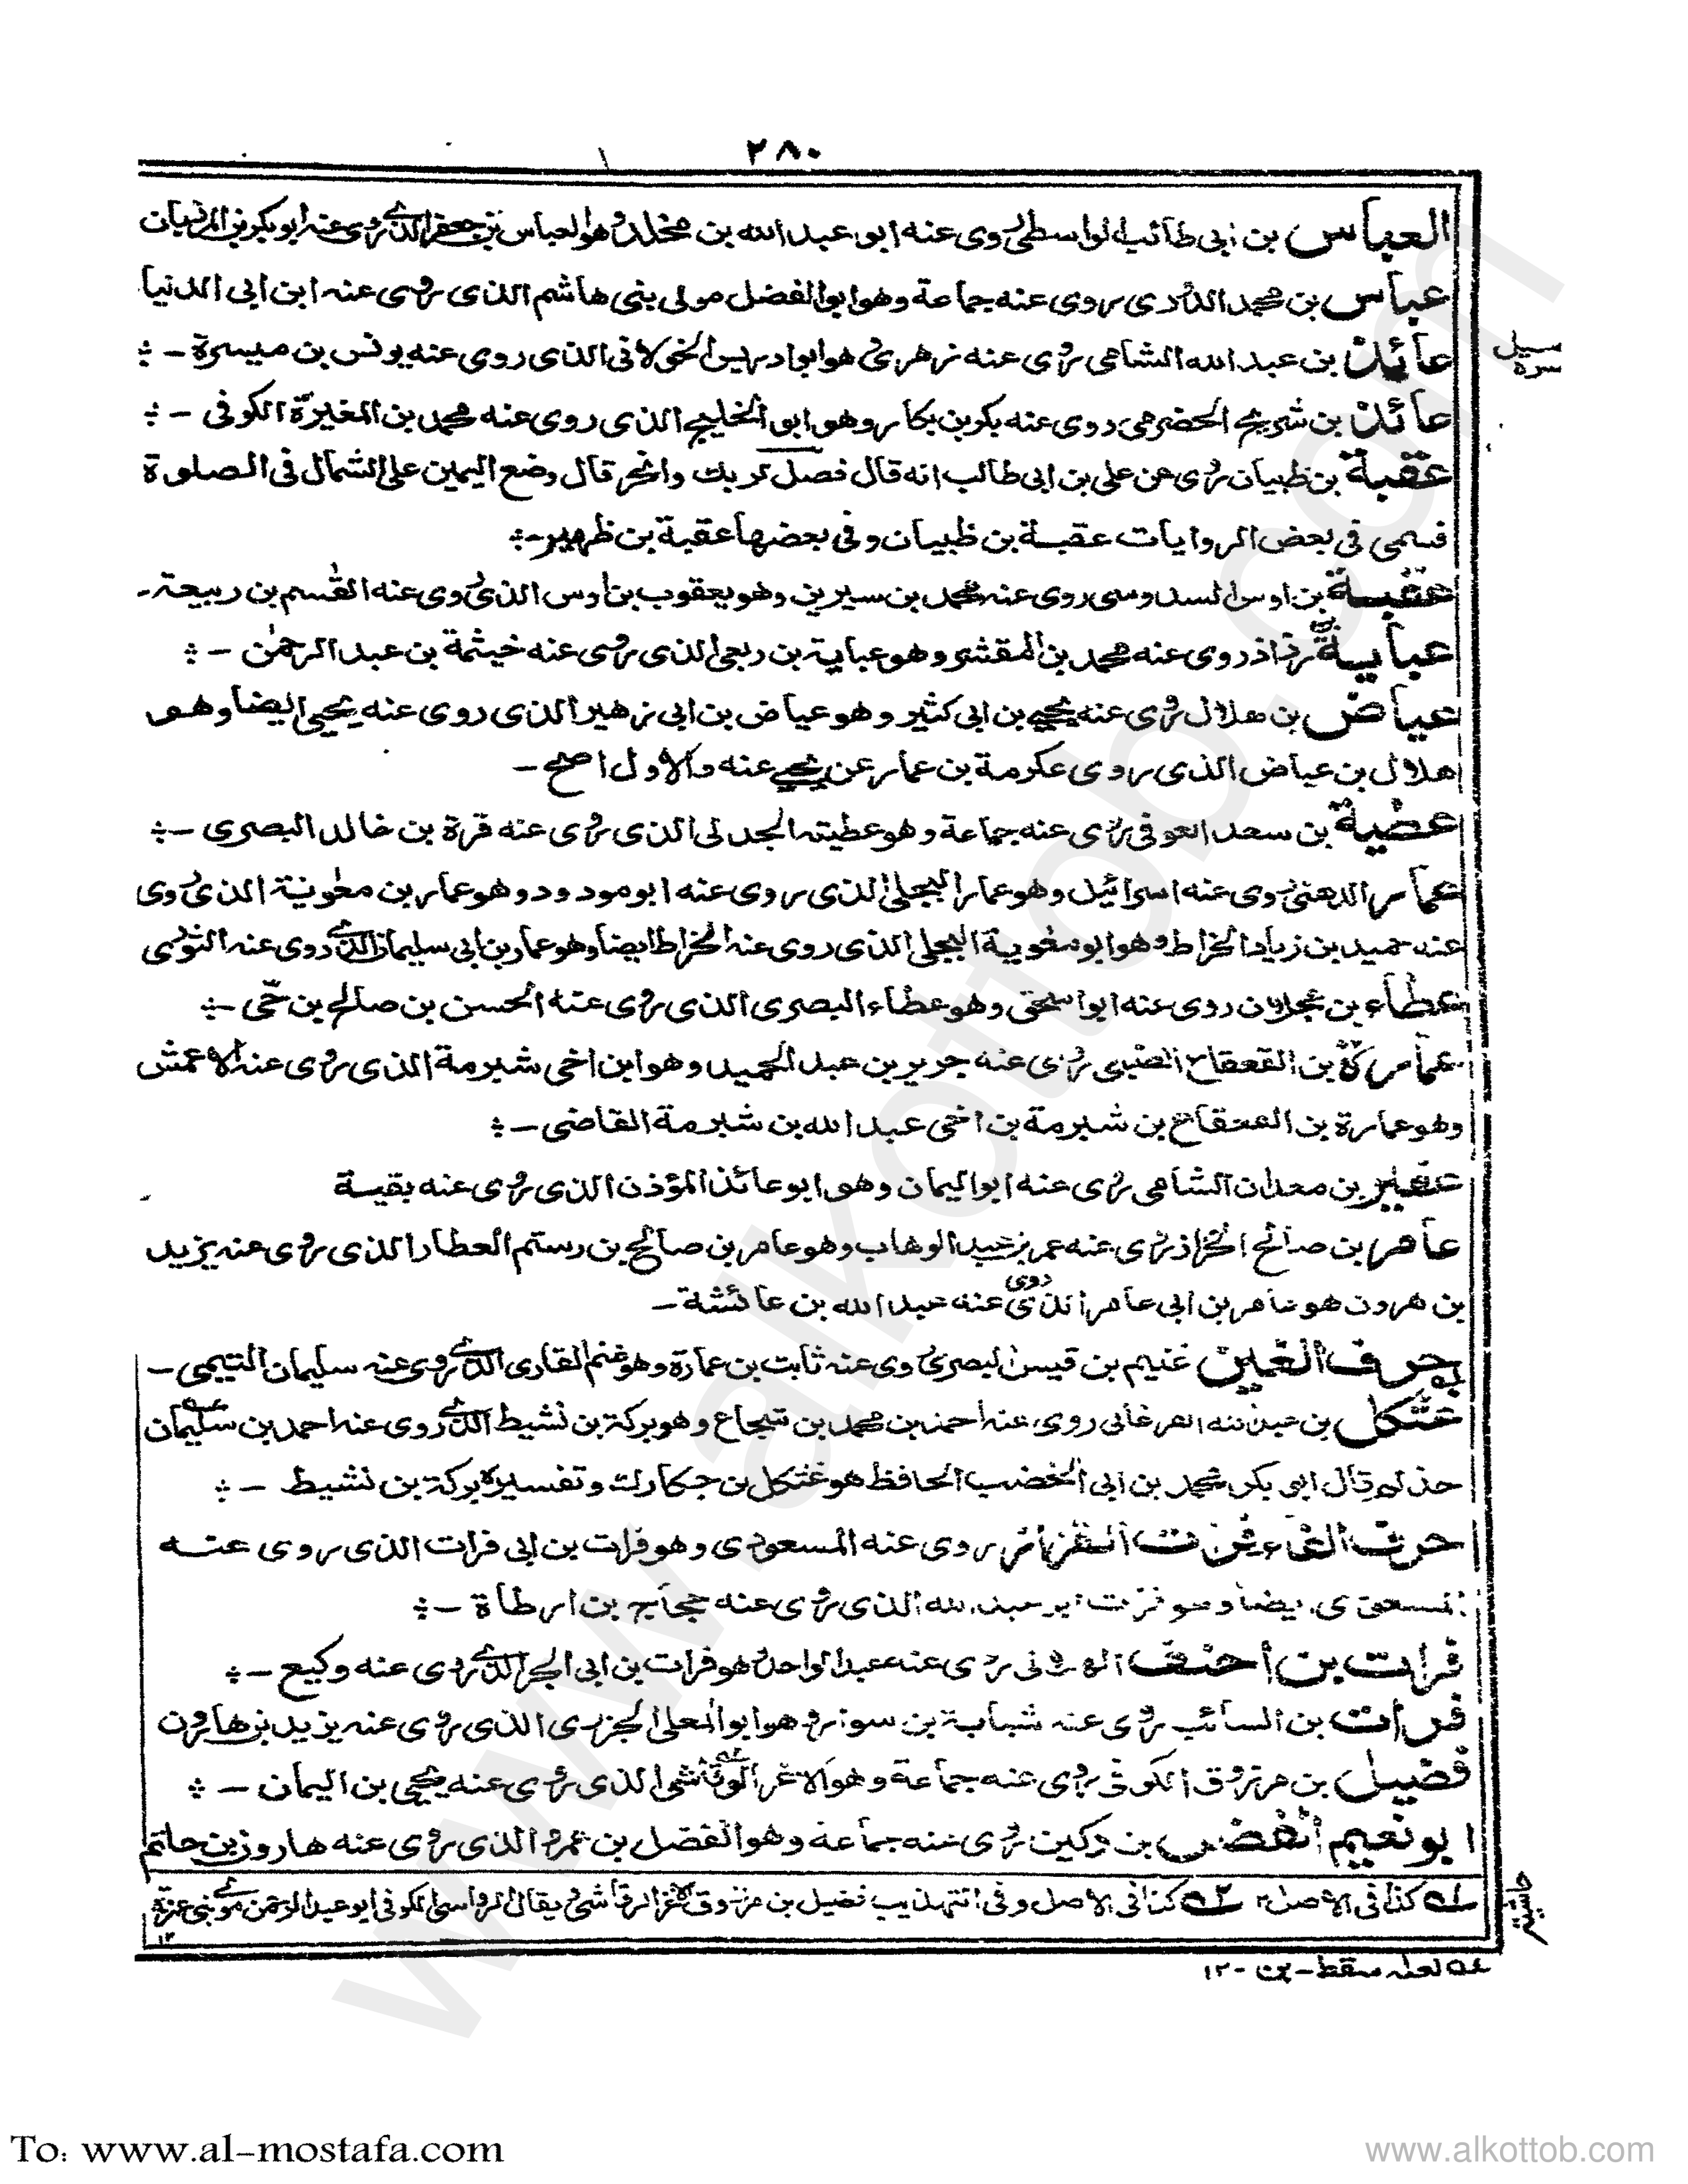 ٢٨٠
العباس بن ابى طالب الواسطى روى عنه ابو عبد الله بن مخلد وهو العباس بن جعفر الذى روى عنه ابو بكر بن المرزبان
عباس بن محمد الدورى روى عنه جماعة وهو ابو الفضل مولى بنى هاشم الذى روى عنه ابن ابى الدنيا
عائذ بن عبد الله الشامى روى عنه زهرى وهو ابو ادريس الخولانى الذى روى عنه يونس بن ميسرة -
عائذ بن شريح الحضرمى روى عنه بكر بن بكار وهو ابو الخليج الذى روى عنه محمد بن المغيرة الكوفى -
عقبة بن ظبيان روى عن على بن ابى طالب انه قال فصل لربك وانحر قال وضع اليمين على الشمال فى الصلوة
فسمى فى بعض الروايات عقبة بن ظبيان وفى بعضها عقبة بن ظهير -
عقبة بن اوس السدوسى روى عنه محمد بن سيرين وهو يعقوب بن اوس الذى روى عنه القسم بن ربيعة -
عباية روى عنه محمد بن وهو عباية بن ربعى الذى روى عنه خيثمة بن عبد الرحمن -
عياض بن هلال روى عنه يحيى بن ابى كثير وهو عياض بن ابى زهير الذى روى عنه يحيى ايضا وهو
هلال بن عياض الذى روى عكرمة بن عمار عن يحيى عنه والاول اصح -
عطية بن سعد العوفى روى عنه جماعة وهو عطية الجدلى الذى روى عنه قرة بن خالد البصرى -
عمار الدهنى روى عنه اسرائيل وهو عمار البجلى الذى روى عنه ابو مودود وهو عمار بن معوية الذى روى
عنه حميد بن زياد الخراط وهو ابو معوية البجلى الذى روى عنه الخراط ايضا وهو عمار بن ابى سليمان الذى روى عنه الثورى
عطاء بن عجلان روى عنه ابو اسحق وهو عطاء البصرى الذى روى عنه الحسن بن صالح بن حى -
عمارة بن القعقاع الضبى روى عنه جرير بن عبد الحميد وهو ابن اخى شبرمة الذى روى عنه الاعمش
وهو عمارة بن القعقاع بن شبرمة بن اخى عبد الله بن شبرمة القاضى -
عفير بن معدان الشامى روى عنه ابو اليمان وهو ابو عائذ المؤذن الذى روى عنه بقية
عامر بن صالح الخزاز روى عنه عمر بن عبد الوهاب وهو عامر بن صالح بن رستم العطار الذى روى عنه يزيد
بن هرون هو عامر بن ابى عامر الذى روى عنه عبد الله بن عائشة -
حرف الغين غنيم بن قيس البصرى روى عنه ثابت بن عمارة وهو غنم القارى الذى روى عنه سليمان التيمى -
بن عبد الله الفرغانى روى عنه احمد بن محمد بن شجاع وهو بركة بن نشيط الذى روى عنه احمد بن سليمان
قال ابى بكر محمد بن ابى الخضيب الحافظ هو عثكل بن حكارك وتفسيره بركة بن نشيط -
حرف الفاء فرات القزاز روى عنه المسعودى وهو فرات بن ابى فرات الذى روى عنه
المسعودى ايضا وهو فرات ابو عبد الله الذى روى عنه حجاج بن ارطاة -
فرات بن احنف روى عنه عبد الواحد وهو فرات بن ابى الذى روى عنه وكيع -
فرات بن السائب روى عنه شبابة بن سوار وهو ابو المعلى الجزرى الذى روى عنه يزيد بن هارون
فضيل بن مرزوق الكوفى روى عنه جماعة وهو الاغر الرقاشى الذى روى عنه يحيى بن اليمان -
ابو نعيم الفضل بن دكين روى عنه جماعة وهو الفضل بن عمرو الذى روى عنه هارون بن حاتم
كذا فى الاصل ١٢ كذا فى الاصل وفى التهذيب فضيل بن مرزوق الاغر الرقاشى ويقال الرواسى الكوفى ابو عبد الرحمن مولى بنى عنزة ١٢
لعله سقط - بن - ١٢
To: www.al-mostafa.com
www.alkottob.com